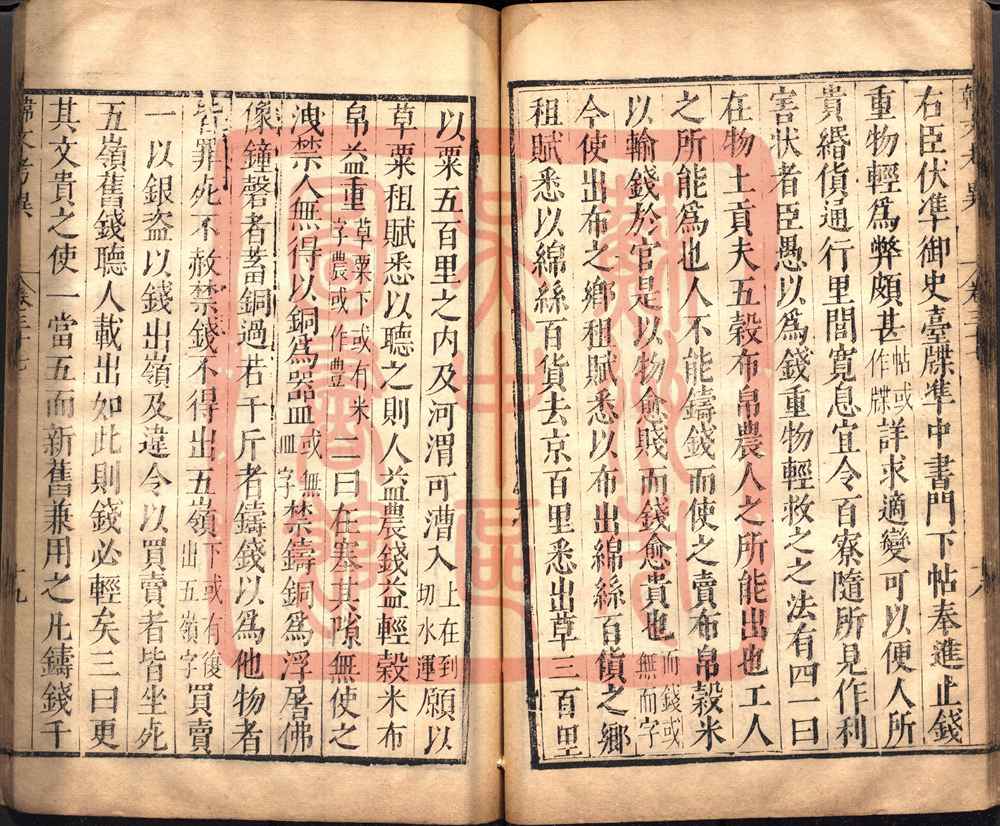 右臣伏準御史臺牒準中書門下帖奉進止錢
重物輕爲弊頗甚帖或作牒詳求適變可以便人所
貴緡貨通行里閭寛息宜令百寮隨所見作利
害狀者臣愚以爲錢重物輕救之之法有四一曰
在物土貢夫五穀布帛農人之所能出也工人
之所能爲也人不能鑄錢而使之賣布帛穀米
以輸錢於官是以物愈賤而錢愈貴也而錢或無而字
今使出布之鄉租賦悉以布出綿絲百貨之鄉
租賦悉以綿絲百貨去京百里悉出草三百里
以粟五百里之内及河渭可漕入上在到切水運願以
草粟租賦悉以聽之則人益農錢益輕穀米布
帛益重草粟下或有米字農或作豊二曰在塞其隙無使之
洩禁人無得以銅爲器皿或無皿字禁鑄銅爲浮屠佛
像鐘磬者蓄銅過若干斤者鑄錢以爲他物者
皆罪死不赦禁錢不得出五嶺下或有復出五嶺字買賣
一以銀盗以錢出嶺及違令以買賣者皆坐死
五嶺舊錢聽人載出如此則錢必輕矣三曰更
其文貴之使一當五而新舊兼用之凡鑄錢千
韓文考異
卷三十七
十九